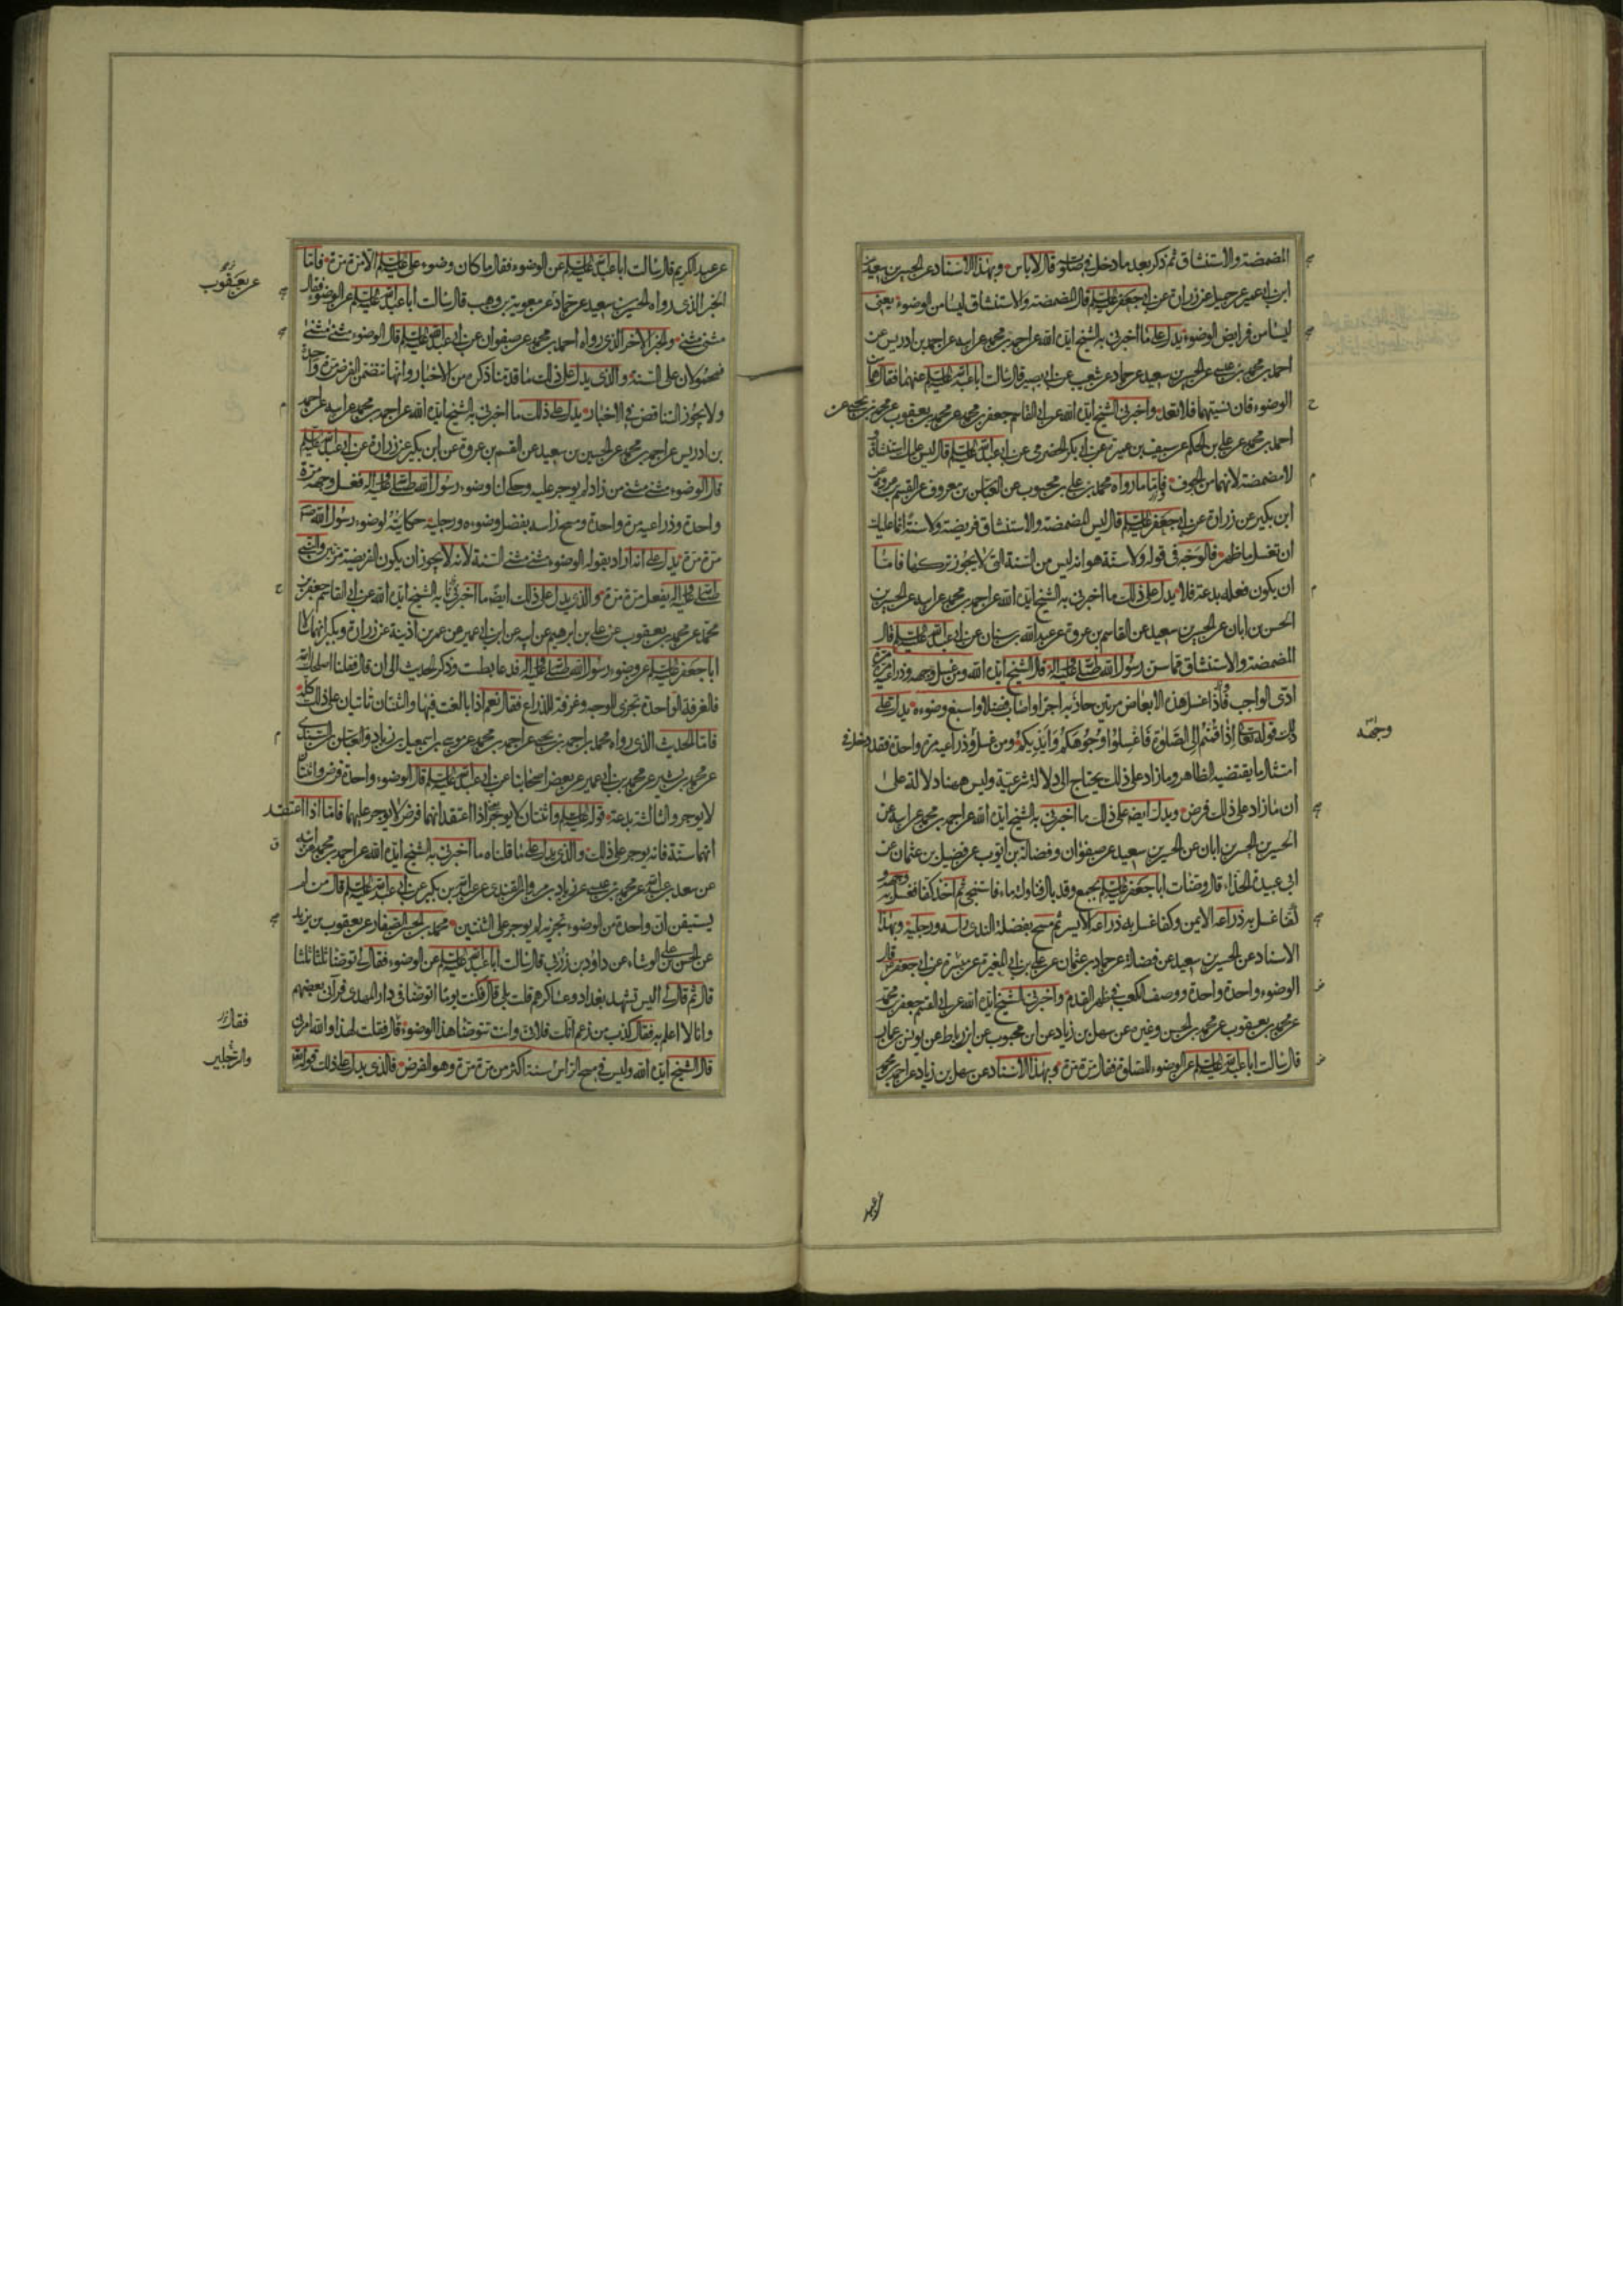 المضمضة والاستنشاق ثم ذكر بعد ما دخل في صلوته قال لا باس وبهذا الاسناد عن الحسين بن سعيد عن
ابن ابي عمير عن جميل عن زرارة عن ابي جعفر عليه السلم قال المضمضة والاستنشاق ليسا من الوضوء يعنى
ليسا من فرايض الوضوء يدل على ما اخبرني به الشيخ ايده الله عن احمد بن محمد عن ابيه عن احمد بن ادريس عن
احمد بن محمد بن عيسى عن الحسين بن سعيد عن حماد عن شعيب عن ابي بصير قال سالت ابا عبد الله عليه السلم عنهما فقال هما من
الوضوء فان نسيتهما فلا تعد واخبرني الشيخ ايده الله عن ابي القاسم جعفر بن محمد عن محمد بن يعقوب عن محمد بن يحيى عن
احمد بن محمد عن علي بن الحكم عن سيف بن عميرة عن ابي بكر الحضرمي عن ابي عبد الله عليه السلم قال ليس عليك استنشاق و
لا مضمضة لانهما من الجوف فاما ما رواه محمد بن علي بن محبوب عن العباس بن معروف عن القسم بن عروة عن
ابن بكير عن زرارة عن ابي جعفر عليه السلم قال ليس المضمضة والاستنشاق فريضة ولا سنة انما عليك
ان تغسل ما ظهر فالوجه في قوله ولا سنة هو انه ليس من السنة التي لا يجوز تركها فاما
ان يكون فعله بدعة فلا يدل على ذلك ما اخبرني به الشيخ ايده الله عن احمد بن محمد عن ابيه عن الحسين بن
الحسن بن ابان عن الحسين بن سعيد عن القاسم بن عروة عن عبد الله بن سنان عن ابي عبد الله عليه السلم قال
المضمضة والاستنشاق مما سن رسول الله صلى الله عليه واله قال الشيخ ايده الله ومن غسل وجهه وذراعيه مرة مرة
ادى الواجب فاذا غسل هذه الابعاض مرتين حاز به اجرا واصاب فضلا واسبغ وضوءه يدل على
ذلك قوله تعالى اذا قمتم الى الصلوة فاغسلوا وجوهكم وايديكم ومن غسل وذراعيه مرة واحدة فقد دخل في
وجهه
امتثال ما يقتضيه الظاهر وما زاد على ذلك يحتاج الى دلالة شرعية وليس ههنا دلالة على
ان ما زاد على ذلك فرض ويدل ايضا على ذلك ما اخبرني به الشيخ ايده الله عن احمد بن محمد عن ابيه عن
الحسين بن الحسن بن ابان عن الحسين بن سعيد عن صفوان وفضالة بن ايوب عن فضيل بن عثمان عن
ابي عبيدة الحذاء قال وضأت ابا جعفر عليه السلم بجمع وقد بال فناولته ماء فاستنجى ثم اخذ كفا فغسل به وجهه و
كفا غسل به ذراعه الايمن وكفا غسل به ذراعه الايسر ثم مسح بفضلة الندى راسه ورجليه وبهذا
الاسناد عن الحسين بن سعيد عن فضالة عن حماد بن عثمان عن علي بن ابي المغيرة عن ميسرة عن ابي جعفر قال
الوضوء واحدة واحدة ووصف الكعب في ظهر القدم واخبرني الشيخ ايده الله عن ابي القسم جعفر بن محمد
عن محمد بن يعقوب عن محمد بن الحسن وغيره عن سهل بن زياد عن ابن محبوب عن ابن رباط عن يونس بن عمار
قال سالت ابا عبد الله عليه السلم عن الوضوء للصلوة فقال مرة مرة وبهذا الاسناد عن سهل بن زياد عن احمد بن محمد
عن عبد
عن عبد الكريم قال سالت ابا عبد الله عليه السلم عن الوضوء فقال ما كان وضوء علي عليه السلم الا مرة مرة فاما
الخبر الذي رواه الحسين بن سعيد عن حماد عن معوية بن وهب قال سالت ابا عبد الله عليه السلم عن الوضوء فقال
عن يعقوب
مثنى مثنى والخبر الاخر الذي رواه احمد بن محمد عن صفوان عن ابي عبد الله عليه السلم قال الوضوء مثنى مثنى
فمحمولان على السنة والذي يدل على ذلك ما قدمنا ذكره من الاخبار وانها تتضمن الفرض مرة واحدة
ولا يجوز التناقض في الاخبار يدل على ذلك ما اخبرني به الشيخ ايده الله عن احمد بن محمد عن ابيه عن احمد
بن ادريس عن احمد بن محمد عن الحسين بن سعيد عن القسم بن عروة عن ابن بكير عن زرارة عن ابي عبد الله عليه السلم
قال الوضوء مثنى مثنى من زاد لم يوجر عليه وحكى لنا وضوء رسول الله صلى الله عليه واله فغسل وجهه مرة
واحدة وذراعيه مرة واحدة ومسح راسه بفضل وضوءه ورجليه حكايته لوضوء رسول الله ص
مرة مرة يدل على انه اراد بقوله الوضوء مثنى مثنى السنة لانه لا يجوز ان يكون الفريضة مرتين والنبي
صلى الله عليه واله يفعل مرة مرة والذي يدل على ذلك ايضا ما اخبرنا به الشيخ ايده الله عن ابي القاسم جعفر بن
محمد عن محمد بن يعقوب عن علي بن ابرهيم عن ابيه عن ابن ابي عمير عن عمر بن اذينة عن زرارة وبكير انهما سالا
ابا جعفر عليه السلم عن وضوء رسول الله صلى الله عليه واله فدعا بطست وذكر الحديث الى ان قال فقلنا اصلحك الله
فالغرفة الواحدة تجزي الوجه وغرفة للذراع فقال نعم اذا بالغت فيها والثنتان تاتيان على ذلك كله
فاما الحديث الذي رواه محمد بن احمد بن يحيى عن احمد بن محمد عن موسى بن اسمعيل بن زياد والعباس بن السندي
عن محمد بن بشير عن محمد بن ابي عمير عن بعض اصحابنا عن ابي عبد الله عليه السلم قال الوضوء واحدة فرض واثنتان
لا يوجر والثالثة بدعة قوله عليه السلم واثنتان لا يوجر اذا اعتقد انهما فرض لا يوجر عليهما فاما اذا اعتقد
انهما سنة فانه يوجر على ذلك والذي يدل على ما قلناه ما اخبرني به الشيخ ايده الله عن احمد بن محمد عن ابيه
عن سعد بن عبد الله عن محمد بن عيسى عن زياد بن مروان القندي عن عبد الله بن بكير عن ابي عبد الله عليه السلم قال من لم
يستيقن ان واحدة من الوضوء تجزيه لم يوجر على الثنتين محمد بن الحسن الصفار عن يعقوب بن يزيد
عن الحسن بن علي الوشاء عن داود بن زربي قال سالت ابا عبد الله عليه السلم عن الوضوء فقال لي توضا ثلثا ثلثا
قال ثم قال لي اليس تشهد بغداد وعساكرهم قلت بلى قال فكنت يوما اتوضا في دار المهدي فرآني بعضهم
وانا لا اعلم به فقال كذب من زعم انك فلاني وانت تتوضا هذا الوضوء قال فقلت لهذا والله امرني
فقال
قال الشيخ ايده الله وليس في مسح الراس سنة اكثر من مرة مرة وهو الفرض فالذي يدل على ذلك قوله تعالى
والرجلين